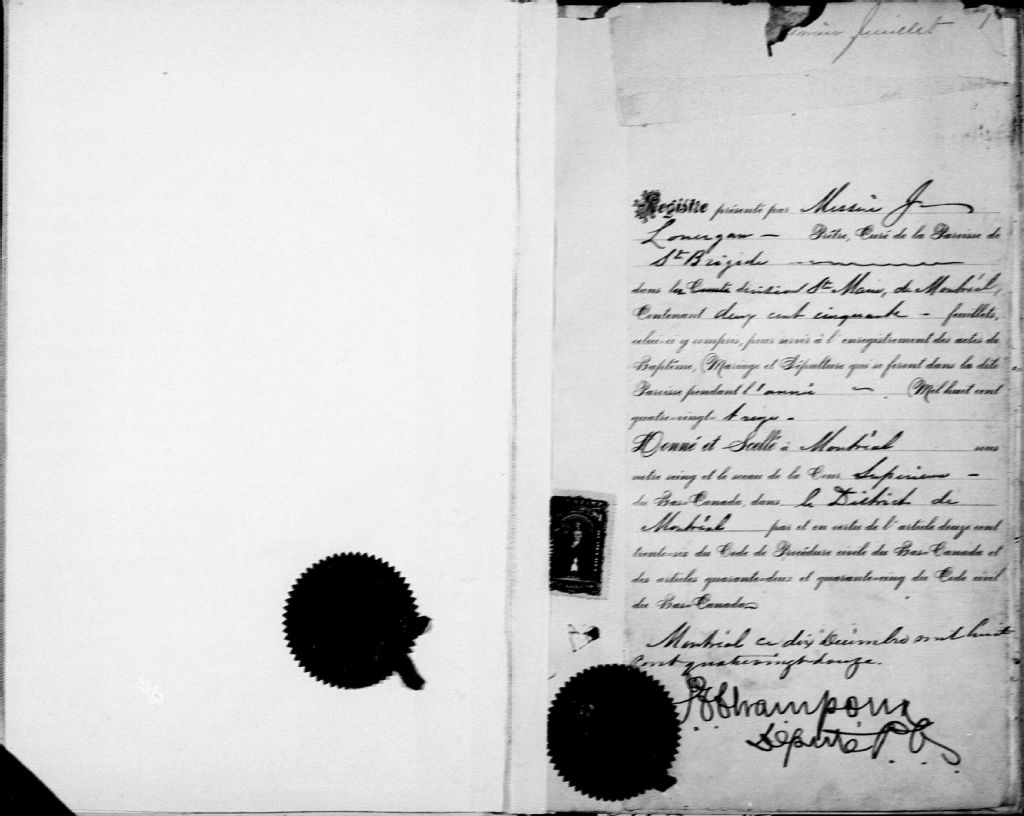 feuillet
Registre présenté par Messire J
Lonergan – Prêtre, Curé de la Paroisse de
St Brigide
dans la Comté division Ste Marie, de Montréal,
Contenant deux cent cinquante – feuillets,
celui-ci y compris, pour servir à l'enregistrement des actes de
Baptême, Mariage et Sépulture qui se feront dans la dite
Paroisse pendant l'année – Mil huit cent
quatre-vingt-treize –
Donné et Scellé à Montréal sous
notre seing et le sceau de la Cour Supérieure –
du Bas-Canada, dans le District de
Montréal par et en vertu de l'article douze cent
trente-six du Code de Procédure civile du Bas-Canada et
des articles quarante-deux et quarante-cinq du Code civil
du Bas-Canada
Montréal ce dix Décembre mil huit
cent quatrevingt douze.
Député P. C. S.